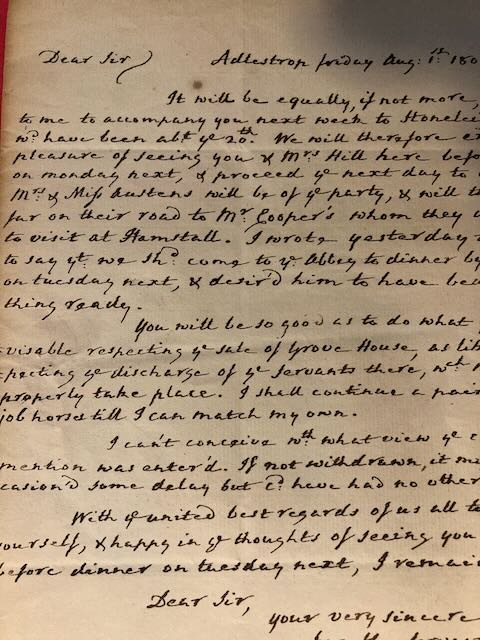 Dear Sir, Adlestrop friday Aug: 1st 180
It will be equally, if not more,
to me to accompany you next week to Stonelei
wd have been abt ye 20th. We will therefore ex
pleasure of seeing you & Mrs Hill here befo
on monday next, & proceed ye next day to
Mrs & Miss Austens will be of ye party, & will th
far on their road to Mr Cooper's whom they
to visit at Hamstall. I wrote yesterday
to say yt we shd come to ye Abbey to dinner by
on tuesday next, & desir'd him to have be
thing ready.
You will be so good as to do what
visable respecting ye sale of Grove House, as li
pecting ye discharge of ye servants there, wch
properly take place. I shall continue a pair
job horses till I can match my own.
I can't conceive wth what view ye c
mention was enter'd. If not withdrawn, it m
casion'd some delay but cd have had no other
With ye united best regards of us all to
yourself, & happy in ye thoughts of seeing you
before dinner on tuesday next, I remain
Dear Sir,
your very sincere